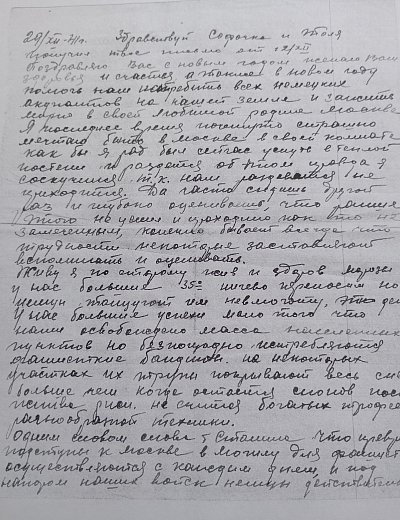 29/XII-41г. Здравствуй Софочка и Толя
Получил твое письмо от 12/XII
Поздравляю Вас с новым годом желаю Вам
здоровья и счастья а также в новом году
помочь нам истребить всех немецких
оккупантов на нашей земле и зажить
мирно в своей любимой родине Москве
Я последнее время почему-то страшно
мечтаю быть в Москве в своей комнате
как бы я рад был сейчас уснуть в теплой
постели и раздется об этом правда я
соскучился т.к. нам раздеваться не
приходится. Да часто сидишь другой
раз и глубоко оцениваешь, что раньше
этого не ценил и проходило как-то не
замеченным, конечно бывает всегда что
трудности некоторые заставляют
вспоминать и оценивать.
Живу я по старому жив и здоров морозы
у нас большие 35° ничего переносим но
немцам невмоготу,
У нас большие успехи мало того что
нами освобождено масса населенных
пунктов но беспощадно истребляются
фашистские бандиты. на некоторых
участках их трупы покрывают весь
больше чем когда остается снопов
не считая богатых
разнообразной техники.
Одним словом слова т Сталина что
подступы к Москве в могилу для
осуществляются с каждым днем и под
напором наших войск немцы действительно